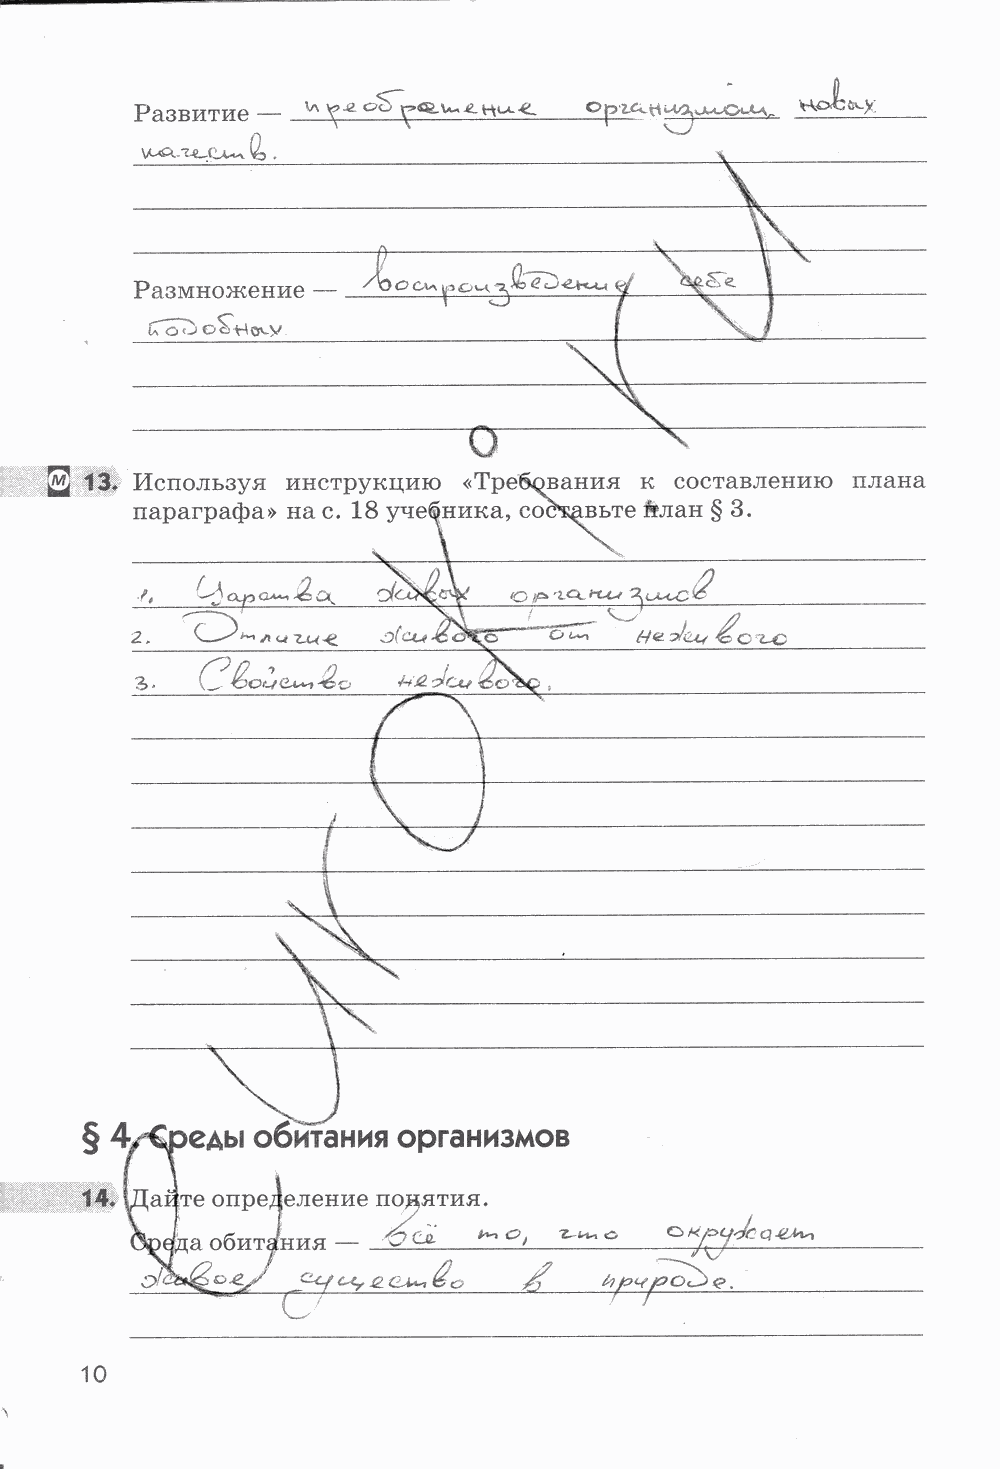 Развитие — преобретение организмом новых
качеств.
Размножение — воспроизведение себе
подобных
М 13. Используя инструкцию «Требования к составлению плана
параграфа» на с. 18 учебника, составьте план § 3.
1. Царства живых организмов
2. Отличие живого от неживого
3. Свойство неживого.
§ 4. Среды обитания организмов
14. Дайте определение понятия.
Среда обитания — Всё то, что окружает
живое существо в природе.
10